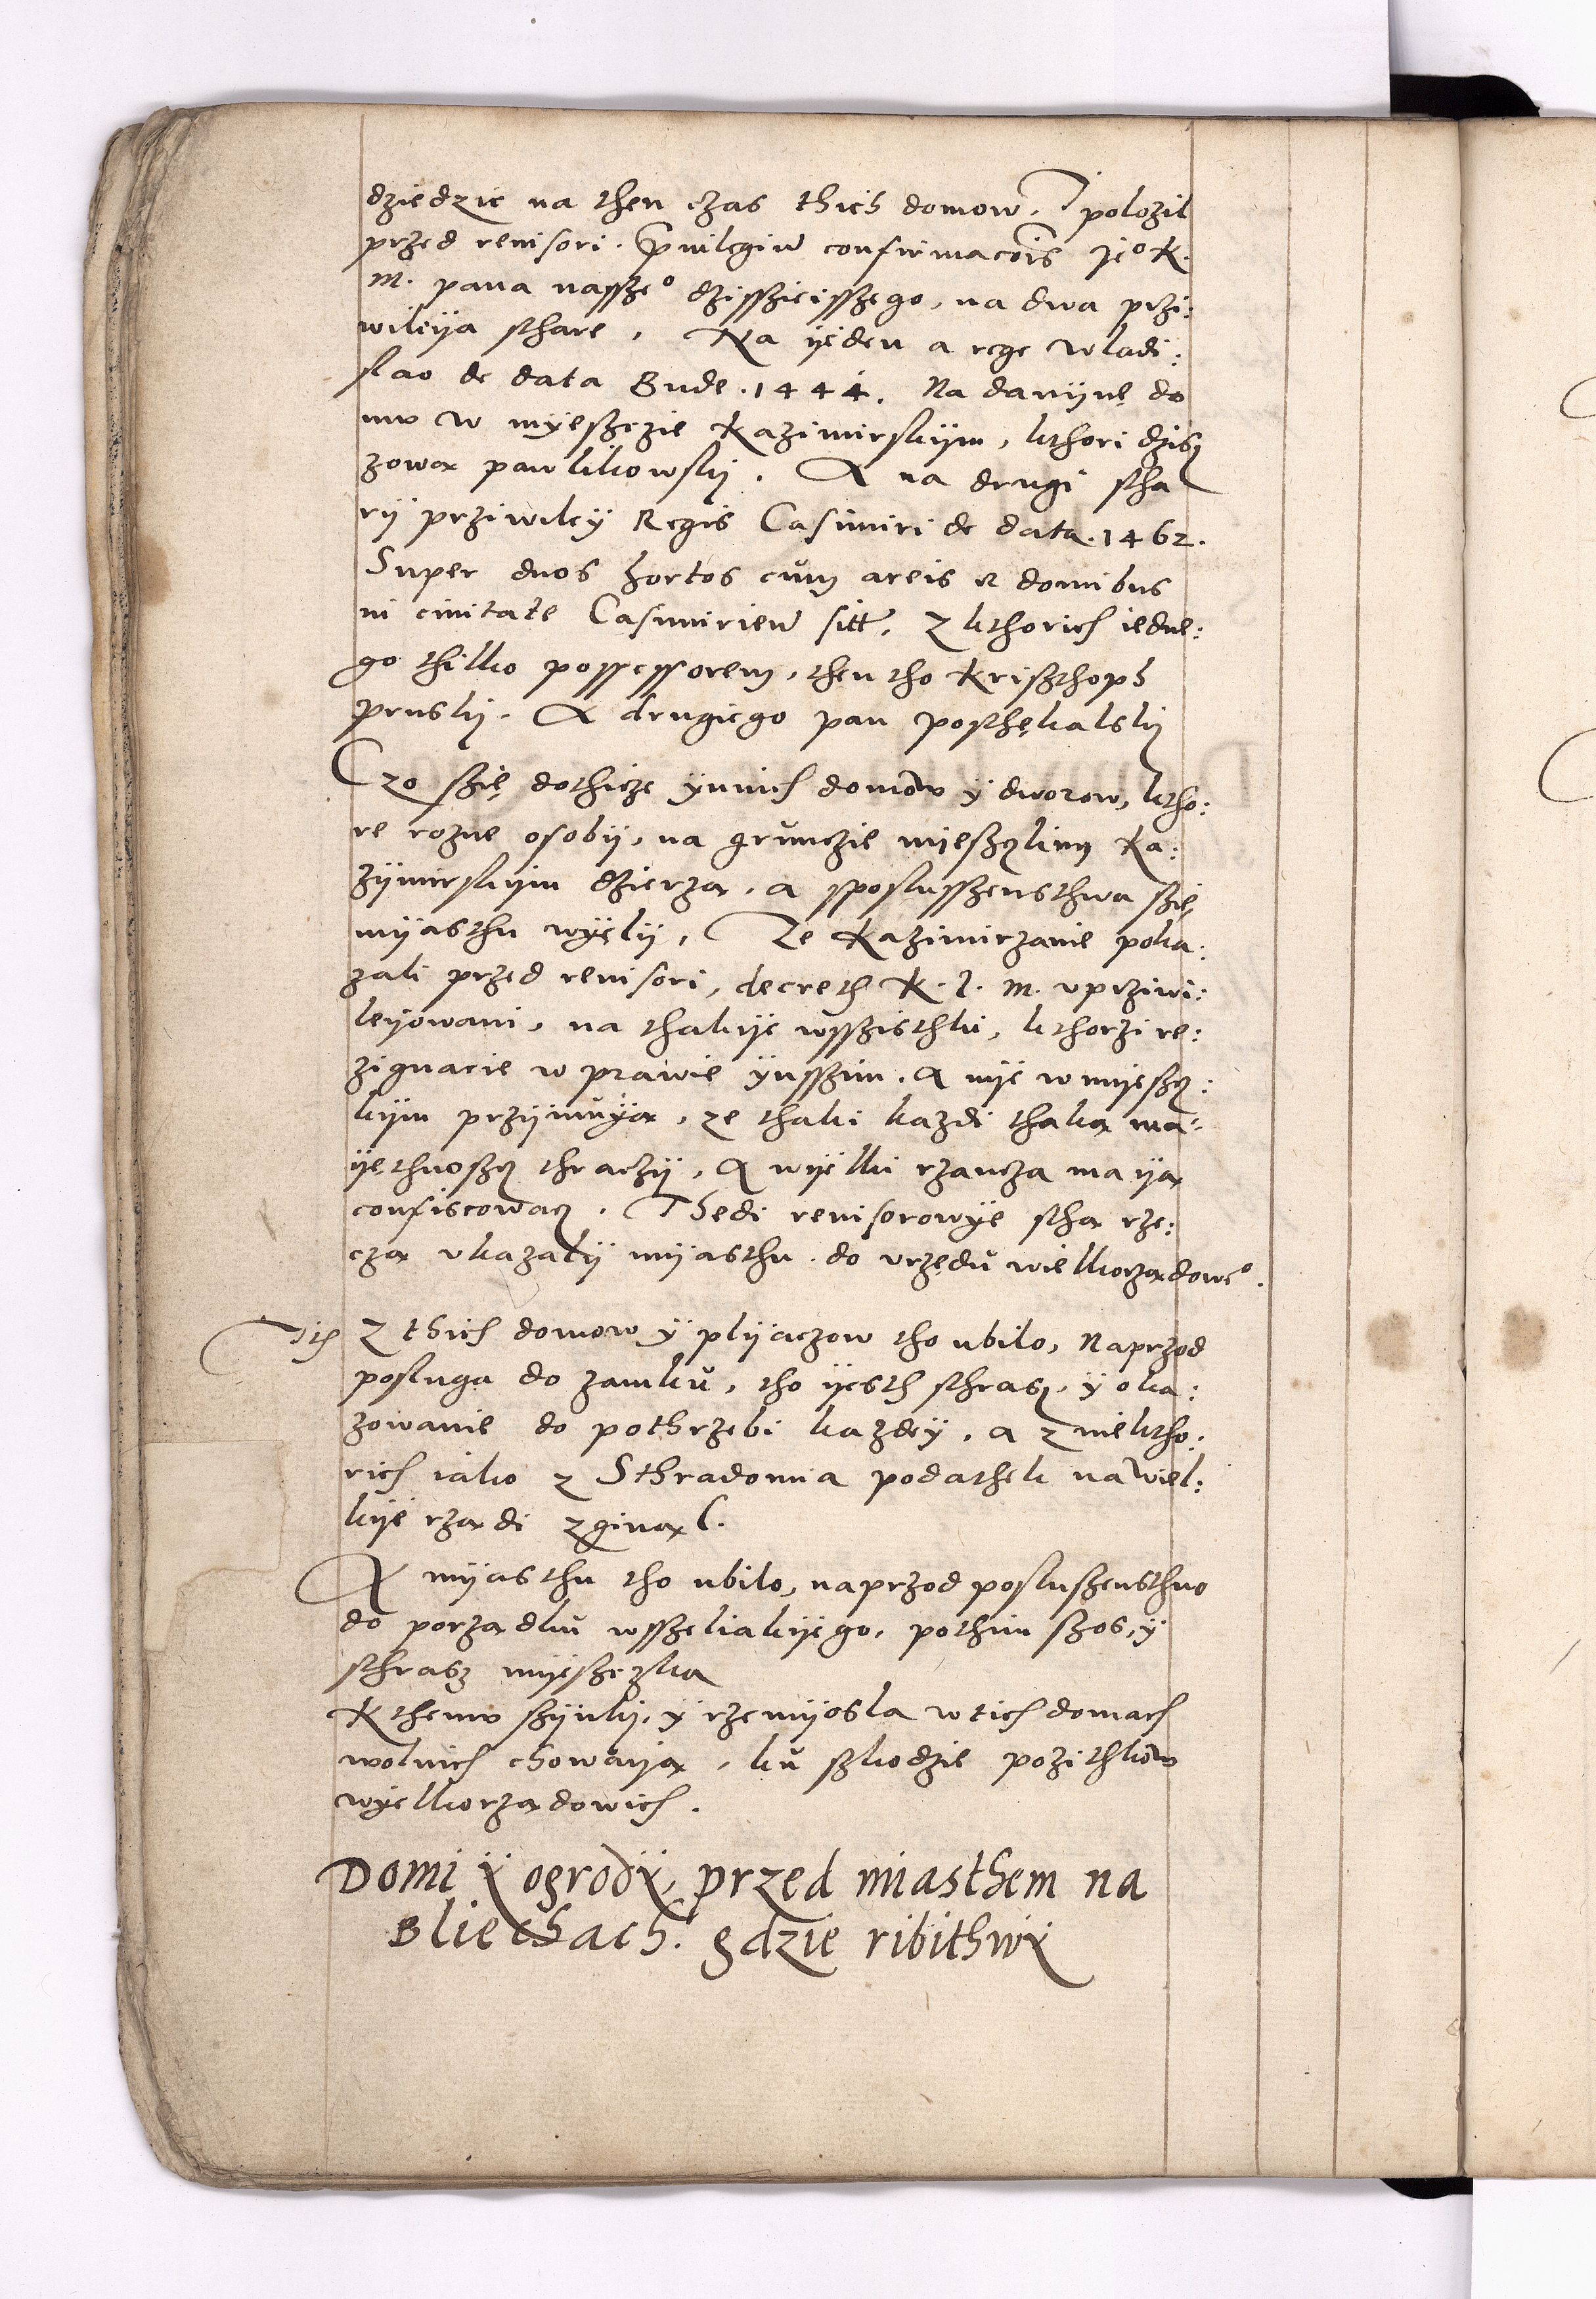 dziedzic na then czas thich domow. J polozil
przed revisori. Pruilegiu confirmacois Je° K.
M. pana nassze° dzisszieisszego, na dwa przi:
wileiya sthare, Na ieden a rege Wladi:
slao de data Bude. 1444. Na daniynę do
mw w myesczie Kazimirskiym, kthori dzisz
zowa pawlikowskj. A na drugi stha
ry prziwiley Regis Casimiri de data. 1462.
Super duos hortos cum areis et domibus
in civitate Casimirien sitt. Z kthorich iedne:
go thilko possessorem, then tho Kriszthoph
Pruskj. A drugiego pan poskhękalskj
Czo szię dothicze ynnich domow y dworow, ktho:
re rozne osobii, na gruncie mieszczkim Ka:
zymirskiym dzierza, a sposlusszensthwa szię
myasthu wyęlij, Ze Kazimirzanie poka:
zali przed revisori, decreth K. J. M. vprziwi:
leyowani, na thakiye wsszisthki, kthorzi re:
zignacie w prawie ynsszim, A nye w myescz:
kiym przyimuya, ze thaki kazdi thaka ma:
yethnoscz thraczy, A wyelki rzancza maya
confiscowacz. Thedi revisorowye stha rze:
cza vkazaly myasthu do vrzędu wielkorzadowe°.
Ith z thich domow y plyaczow tho ubilo, Naprzod
posluga do zamku, tho yesth sthrasz, y oka:
zowanie do pothrzebi kazdey, a z niektho:
rich iako z Sthradomia podathek na wiel:
kiye rzadi zginal.
A myasthu tho ubilo, naprzod posluszensthwo
do porzadku wsszeliakiyego, pothim szos, y
sthrasz myesczka
K themu szynki, y rzemyosla w tich domach
wolnich chowaya, ku szkodzie pozithkow
wyelkorzadowich.
Domi y ogrody przed miasthem na
Bliechach. gdzie ribithwy